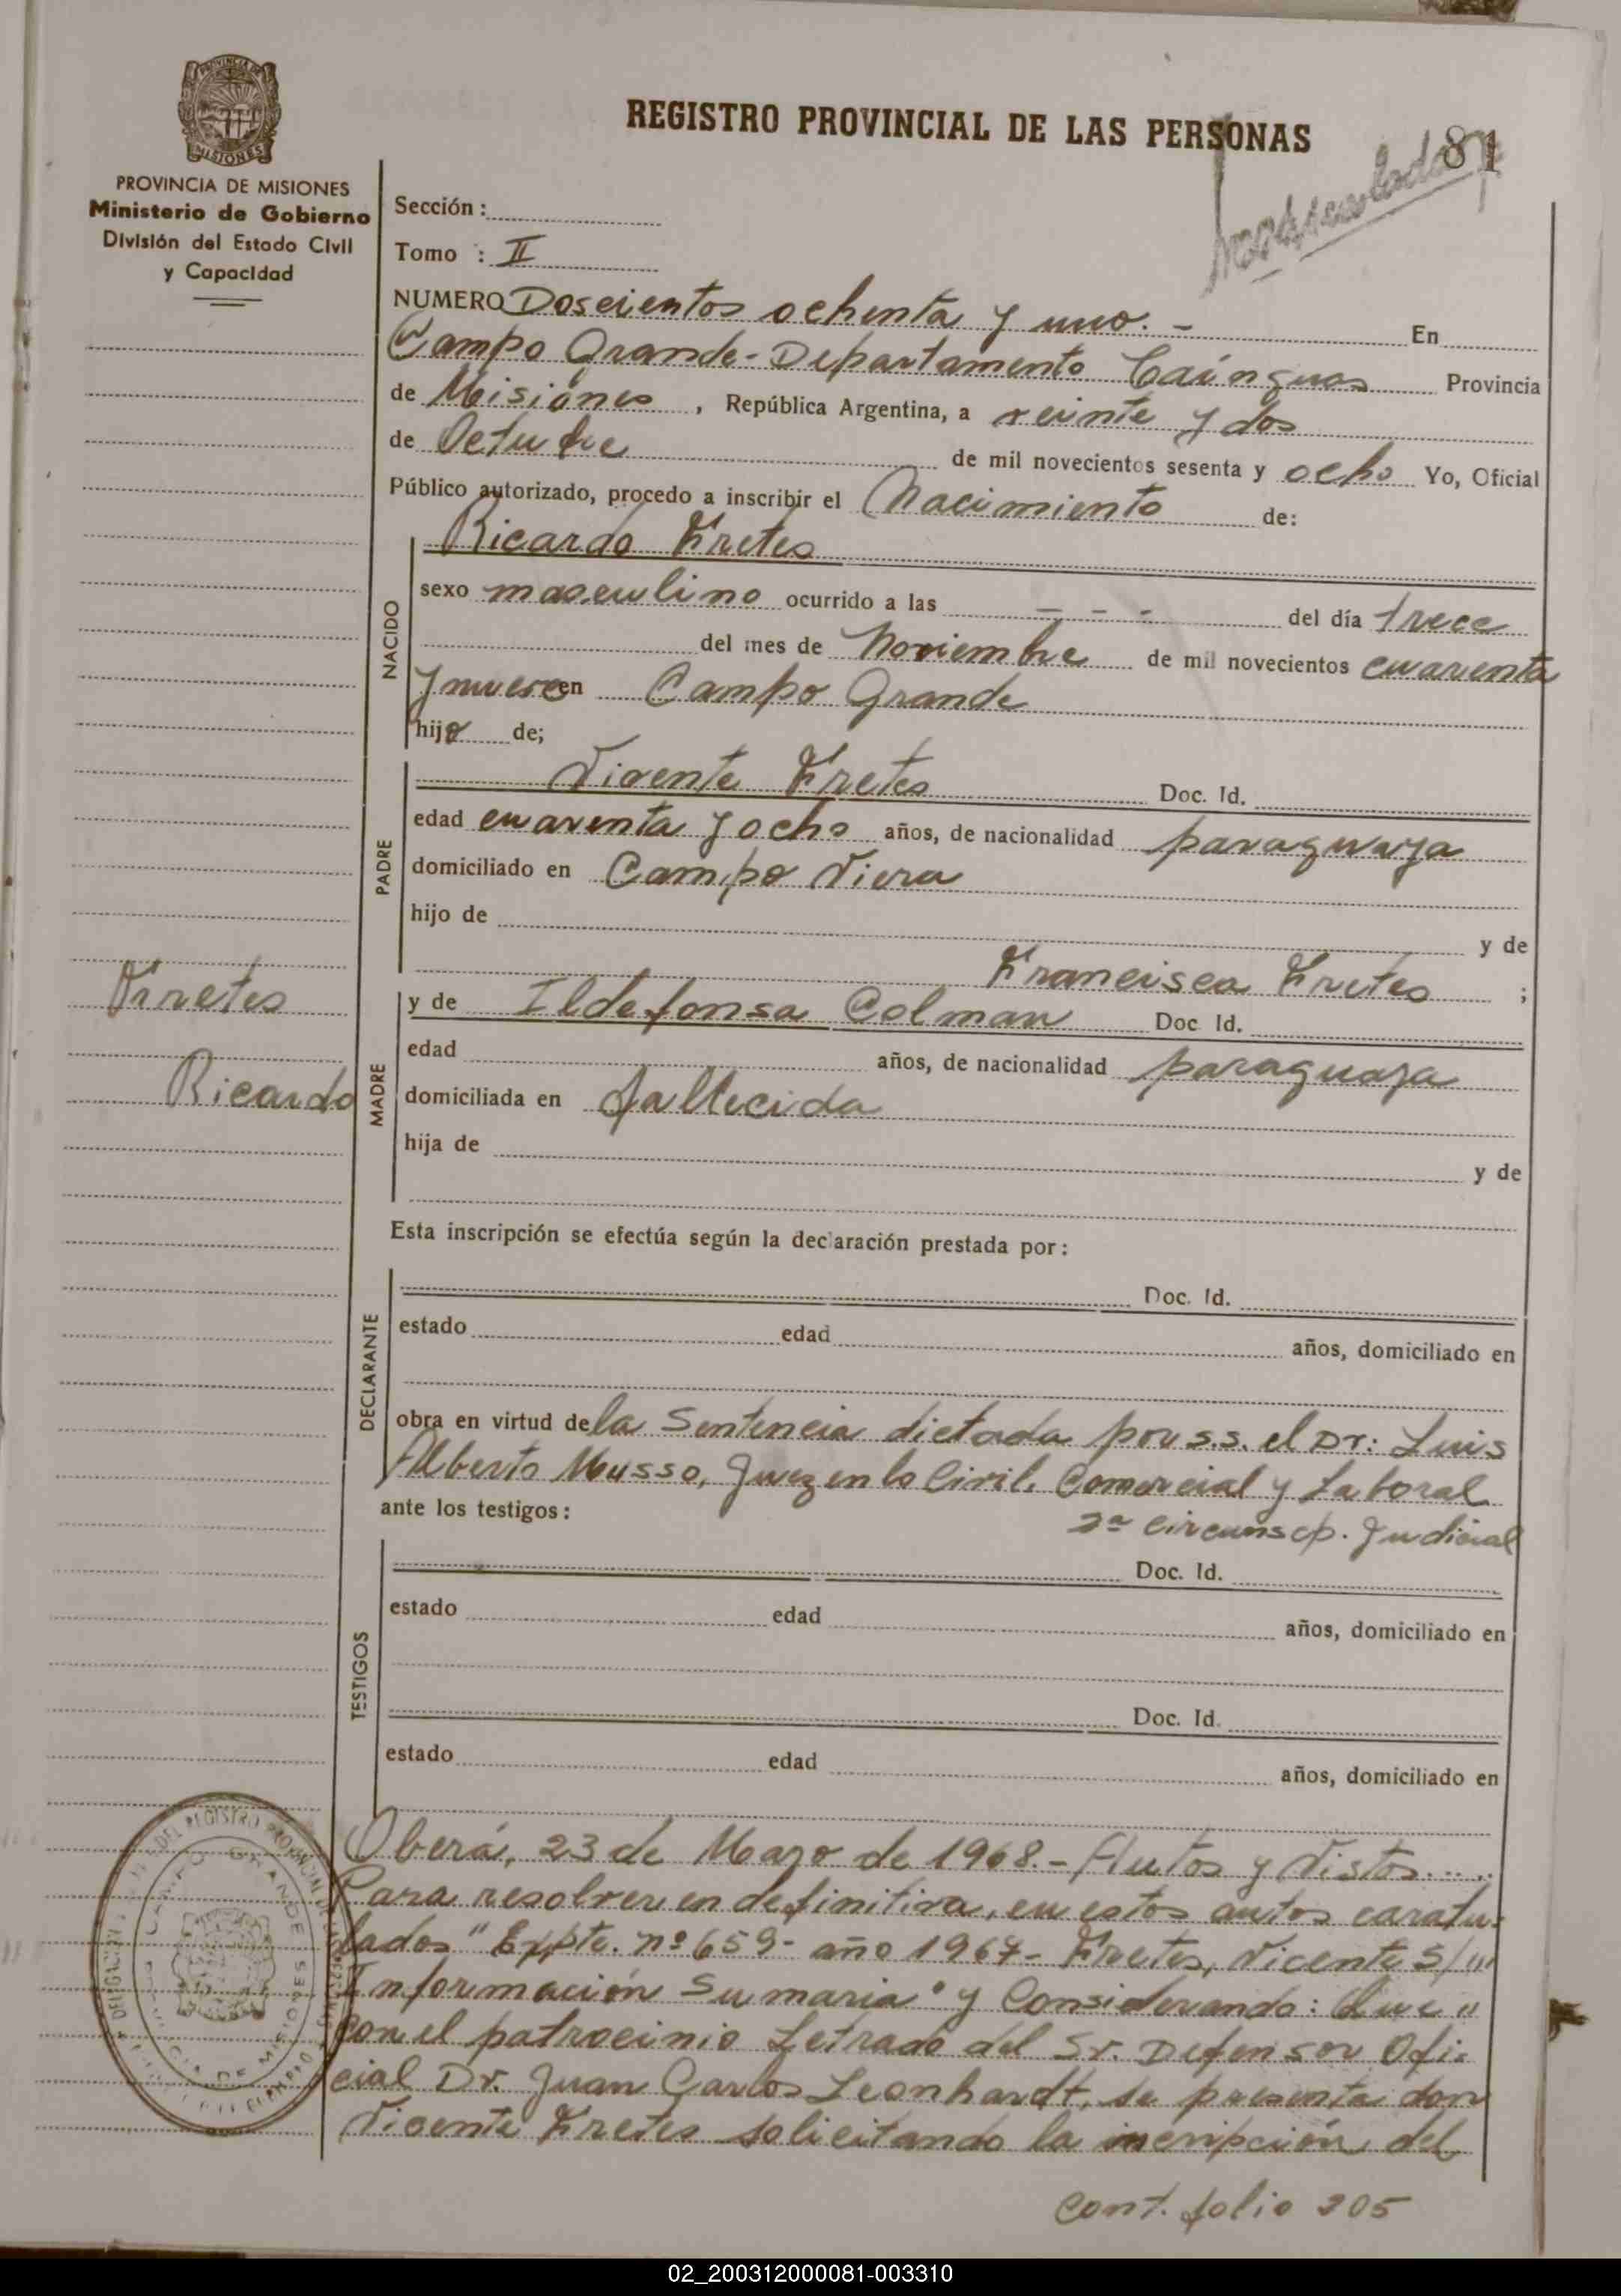 PROVINCIA DE MISIONES
Ministerio de Gobierno
División del Estado Civil
y Capacidad
REGISTRO PROVINCIAL DE LAS PERSONAS
81
Sección :
Tomo : II
NUMERO Doscientos ochenta y uno. - En
Campo Grande - Departamento Cainguas Provincia
de Misiones, República Argentina, a veinte y dos
de Octubre de mil novecientos sesenta y ocho Yo, Oficial
Público autorizado, procedo a inscribir el Nacimiento de:
NACIDO
Ricardo Fretes
sexo masculino ocurrido a las - - - del día trece
del mes de Noviembre de mil novecientos cuarenta
y nueve en Campo Grande
hijo de;
PADRE
Vicente Fretes Doc. Id.
edad cuarenta y ocho años, de nacionalidad paraguaya
domiciliado en Campo Viera
hijo de y de
Francisca Fretes ;
Frretes
Ricardo
MADRE
y de Ildefonsa Colman Doc. Id.
edad años, de nacionalidad paraguaya
domiciliada en fallecida
hija de y de
Esta inscripción se efectúa según la declaración prestada por :
DECLARANTE
Doc. Id.
estado edad años, domiciliado en
obra en virtud de la Sentencia dictada por s.s. el Dr: Luis
Alberto Musso, Juez en lo Civil, Comercial y Laboral
ante los testigos : 2ª Circunscp. Judicial
TESTIGOS
Doc. Id.
estado edad años, domiciliado en
Doc. Id.
estado edad años, domiciliado en
Oberá, 23 de Mayo de 1968.- Autos y Vistos.....
Para resolver en definitiva, en estos autos caratu-
lados "Expte. nº 659- año 1967- Fretes, Vicente S/ "
Información Sumaria" y Considerando: Que "
con el patrocinio Letrado del Sr. Defensor Ofi-
cial Dr. Juan Carlos Leonhardt, se presenta don
Vicente Fretes solicitando la inscripción del
Cont. folio 205
02_200312000081-003310